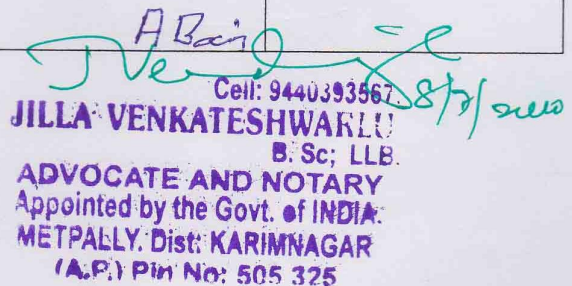 Cell: 9440393567.
JILLA VENKATESHWARLU
B. Sc; LLB.
ADVOCATE AND NOTARY
Appointed by the Govt. of INDIA.
METPALLY. Dist: KARIMNAGAR
(A.P.) Pin No: 505 325